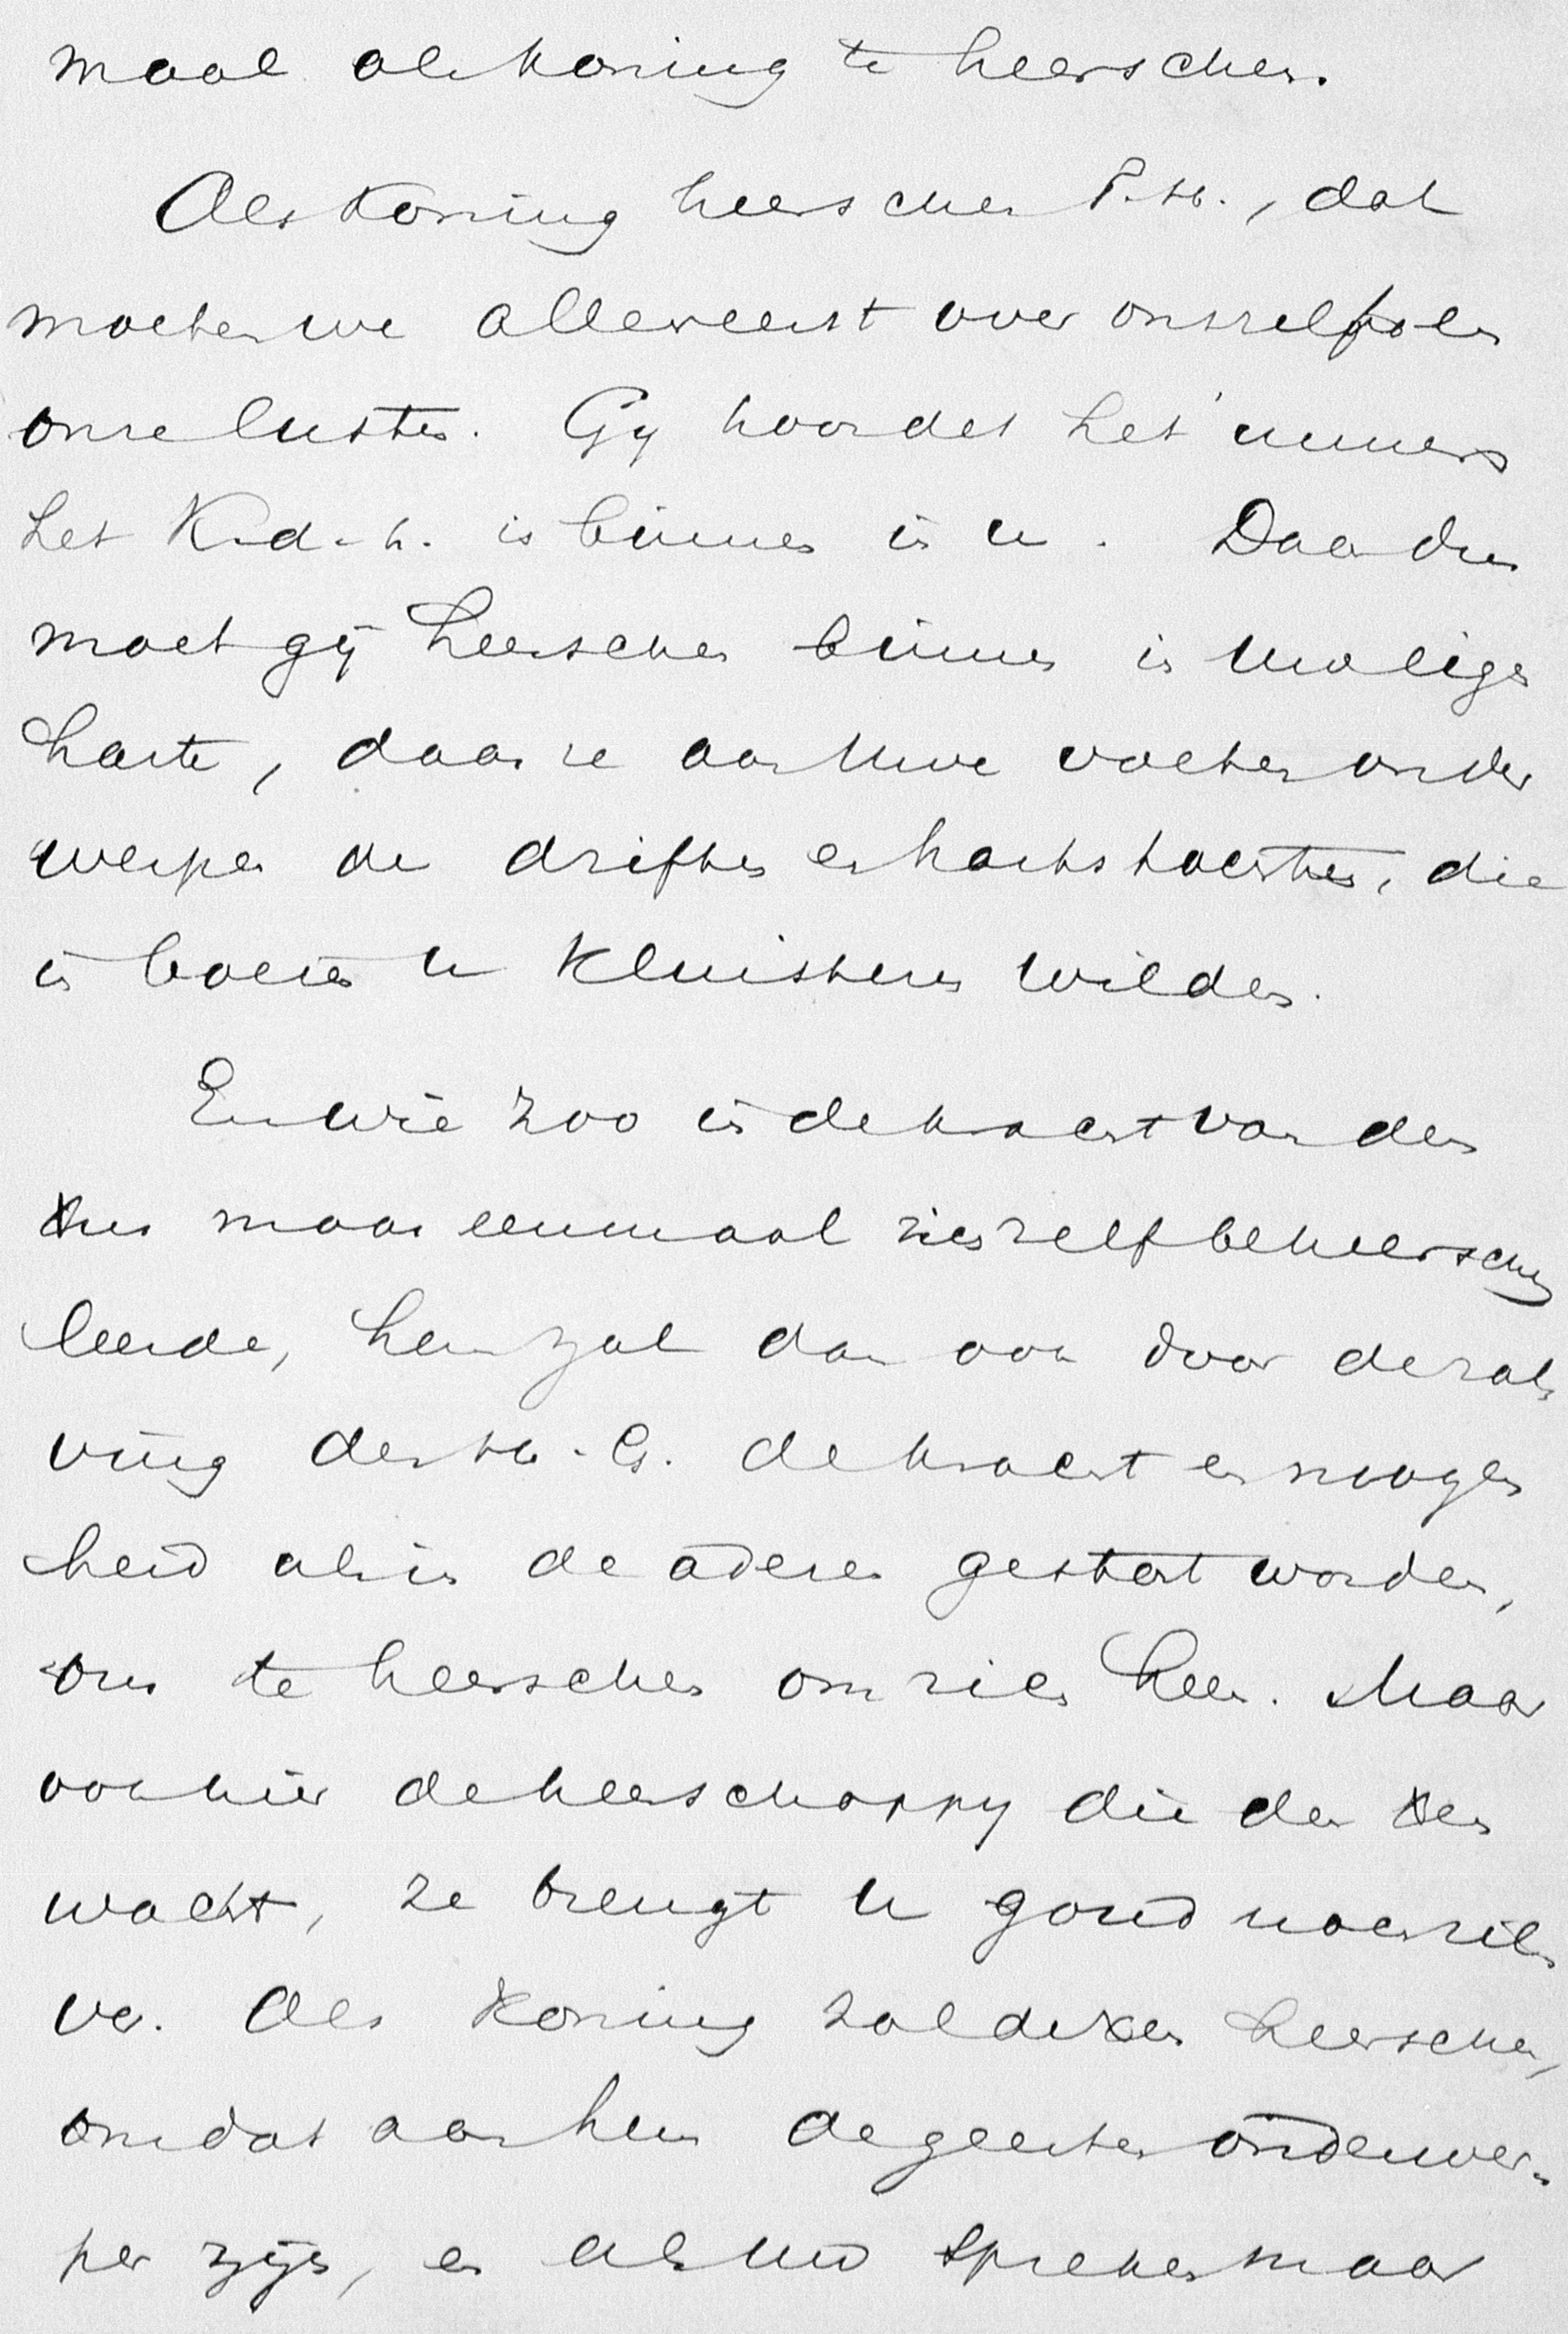 maal als koning te heerschen.
Als koning heerschen P. H., dat
moeten we allereerst over onszelf over
onze lusten. Gy hoordet het immers
het K. d. h. is binnen in u. Daar dus
moet gij heerschen binnen in Uw eigen
harte, daar ze aan Uwe voeten onder
werpen de driften en hartstochten, die
in boeien U kluisteren wilden.
En wie zoo in de kracht van den
Xus maar eenmaal zichzelf beheerschen
leerde, hem zal dan ook door de zal
ving des H. G. de kracht en mogen
heid als in de aderen gestort worden,
om te heerschen om zich heen. Maar
ook hier de heerschappy die den Xen
wacht, ze brengt U goud noch zil
ver. Als Koning zal de Xen heerschen,
omdat aan hem de geesten onderwor-
pen zijn, en als Uw spreken maar